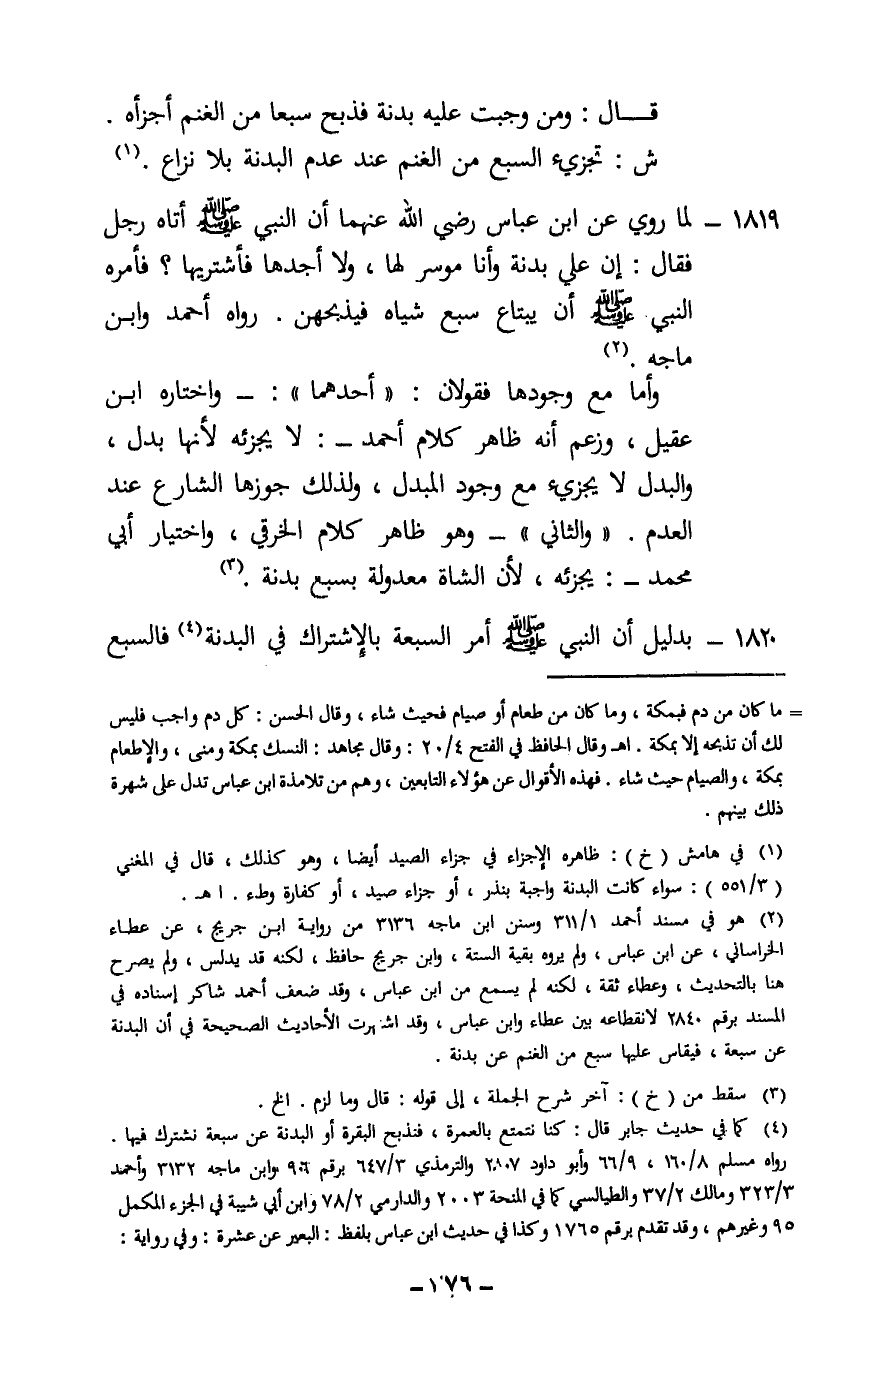 قـــال : ومن وجبت عليه بدنة فذبح سبعا من الغنم أجزأه .
ش : تجزيء السبع من الغنم عند عدم البدنة بلا نزاع .(١)
١٨١٩ ــ لما روي عن ابن عباس رضي الله عنهما أن النبي ﷺ أتاه رجل
فقال : إن علي بدنة وأنا موسر لها ، ولا أجدها فأشتريها ؟ فأمره
النبي ﷺ أن يبتاع سبع شياه فيذبحهن . رواه أحمد وابـن
ماجه .(٢)
وأما مع وجودها فقولان : « أحدهما » : ــ واختاره ابـن
عقيل ، وزعم أنه ظاهر كلام أحمد ــ : لا يجزئه لأنها بدل ،
والبدل لا يجزيء مع وجود المبدل ، ولذلك جوزها الشارع عند
العدم . « والثاني » ــ وهو ظاهر كلام الخرقي ، واختيار أبي
محمد ــ : يجزئه ، لأن الشاة معدولة بسبع بدنة .(٣)
١٨٢٠ ــ بدليل أن النبي ﷺ أمر السبعة بالإشتراك في البدنة(٤) فالسبع
= ما كان من دم فبمكة ، وما كان من طعام أو صيام فحيث شاء ، وقال الحسن : كل دم واجب فليس
لك أن تذبحه إلا بمكة . اهـ وقال الحافظ في الفتح ٢٠/٤ : وقال مجاهد : النسك بمكة ومنى ، والإطعام
بمكة ، والصيام حيث شاء . فهذه الأقوال عن هؤلاء التابعين ، وهم من تلامذة ابن عباس تدل على شهرة
ذلك بينهم .
(١) في هامش ( خ ) : ظاهره الإجزاء في جزاء الصيد أيضا ، وهو كذلك ، قال في المغني
( ٥٥١/٣ ) : سواء كانت البدنة واجبة بنذر ، أو جزاء صيد ، أو كفارة وطء . ا هـ .
(٢) هو في مسند أحمد ٣١١/١ وسنن ابن ماجه ٣١٣٦ من رواية ابـن جريج ، عن عطـاء
الخراساني ، عن ابن عباس ، ولم يروه بقية الستة ، وابن جريج حافظ ، لكنه قد يدلس ، ولم يصرح
هنا بالتحديث ، وعطاء ثقة ، لكنه لم يسمع من ابن عباس ، وقد ضعف أحمد شاكر إسناده في
المسند برقم ٢٨٤٠ لانقطاعه بين عطاء وابن عباس ، وقد اشتهرت الأحاديث الصحيحة في أن البدنة
عن سبعة ، فيقاس عليها سبع من الغنم عن بدنة .
(٣) سقط من ( خ ) : آخر شرح الجملة ، إلى قوله : قال وما لزم . الخ .
(٤) كما في حديث جابر قال : كنا نتمتع بالعمرة ، فنذبح البقرة أو البدنة عن سبعة نشترك فيها .
رواه مسلم ١٦٠/٨ ، ٦٦/٩ وأبو داود ٢٨٠٧ والترمذي ٦٤٧/٣ برقم ٩٠٦ وابن ماجه ٣١٣٢ وأحمد
٣٢٣/٣ ومالك ٣٧/٢ والطيالسي كما في المنحة ٢٠٠٣ والدارمي ٧٨/٢ وابن أبي شيبة في الجزء المكمل
٩٥ وغيرهم ، وقد تقدم برقم ١٧٦٥ وكذا في حديث ابن عباس بلفظ : البعير عن عشرة : وفي رواية :
ــ ١٧٦ ــ